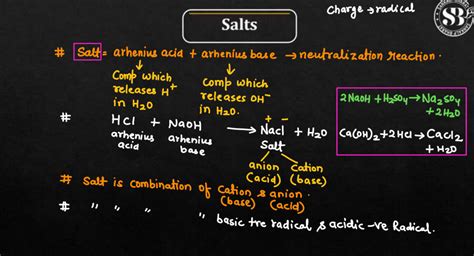 Salts
Charge → radical
SB
# Salt = arhenius acid + arhenius base → neutralization reaction.
Comp which releases H+ in H2O
Comp which releases OH- in H2O.
2NaOH + H2SO4 → Na2SO4 + 2H2O
Ca(OH)2 + 2HCl → CaCl2 + H2O
# HCl + NaOH → NaCl + H2O
+ -
arhenius acid
arhenius base
Salt
anion (acid)
Cation (base)
# Salt is combination of Cation & anion.
(base) (acid)
# " " " " basic +ve radical & acidic -ve Radical.